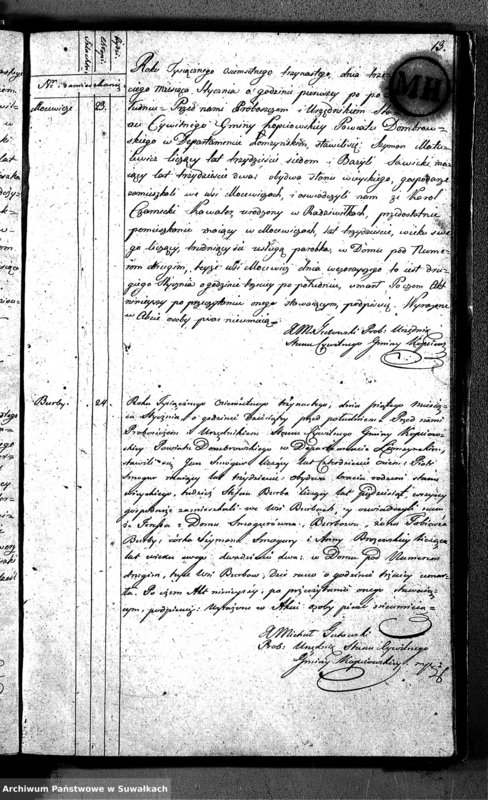 13.
MH
Nr: zamieszkania
Mocewicze 23.
Roku Tysiącznego ośmsetnego trzynastego, dnia trze-
ciego miesiąca Stycznia o godzinie pierwszy po po-
łudniu. Przed nami Proboszczem i Urzędnikiem Sta-
nu Cywilnego Gminy Kopciowskiey Powiatu Dombrow-
skiego w Departamencie Łomżyńskim, stawili się Szymon
liczący lat trzydzieści siedem i Bazyli Sawicki ma-
iący lat trzydzieści dwa: obydwa stanu wieyskiego, gospodarze
zamieszkali we wsi Mocewiczach, i oswiadczyli nam że Karol
Czarnecki Kawaler, urodzony w przedostatnie
pomieszkanie maiący w Mocewiczach, lat trzydzieście, wieku swe-
go liczący, trudniący się usługą parobka, w Domu pod Nume-
rem drugim, teyże wsi Mocewicz dnia wczorayszego to iest dru-
giego Stycznia o godzinie trzeciy po południu, umarł. Po czem Akt
ninieyszy po przeczytaniu onego stawaiącym, podpisaliśmy. Wyrażone
w Akcie osoby pisać nieumieią.
X M Gutowski Prob: Urzędnik
Stanu Cywilnego Gminy Kopciows:
Burby. 24.
Roku Tysiącznego Osiemsetnego trzynastego, dnia piątego miesią-
ca Stycznia, o godzinie dziesiąty przed południem. Przed nami
Proboszczem i Urzędnikiem Stanu Cywilnego Gminy Kopciows-
kiey Powiatu Dombrowskiego w Departamencie Łomżyńskim,
stawili się Jan Smagur liczący lat czterdzieście osiem i Piotr
Smagur maiący lat trzydzieście obydwa bracia rodzeni stanu
wieyskiego, tudzież Stefan Burba liczący lat pięćdziesiąt, wszyscy
gospodarze zamieszkali we wsi Burbach, y oswiadczyli nam
iż z Domu Smagurówna, Burbowa, żona Tobiasza
Burby, córka Szymona Smagury i Anny Brzozowskiey licząca
lat wieku swego dwadzieścia dwa: w Domu pod Numerem
drugim, teyże wsi Burbow, dziś rano o godzinie trzeciy umar-
ła. Po czem Akt ninieyszy, po przeczytaniu onego stawaią-
cym, podpisaliśmy. Wyrażone w Akcie osoby pisać nieumieią=
X Michał Gutowski
Prob: Urzędnik Stanu Cywilnego
Gminy Kopciowskiey. mp
Archiwum Państwowe w Suwałkach